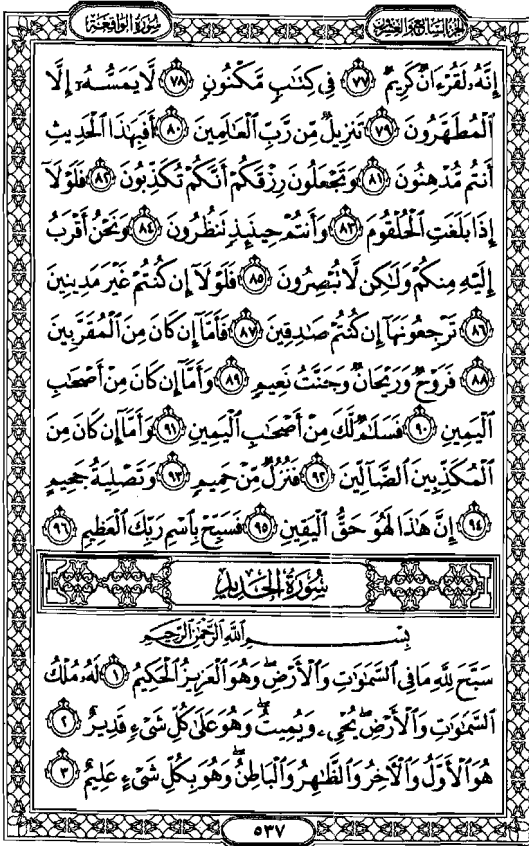 سُورَةُ الوَاقِعَة
الجُزءُ السَّابِعُ وَالعِشْرُون
إِنَّهُۥ لَقُرْءَانٌ كَرِيمٌ ٧٧ فِى كِتَٰبٍ مَّكْنُونٍ ٧٨ لَّا يَمَسُّهُۥٓ إِلَّا
ٱلْمُطَهَّرُونَ ٧٩ تَنزِيلٌ مِّن رَّبِّ ٱلْعَٰلَمِينَ ٨٠ أَفَبِهَٰذَا ٱلْحَدِيثِ
أَنتُم مُّدْهِنُونَ ٨١ وَتَجْعَلُونَ رِزْقَكُمْ أَنَّكُمْ تُكَذِّبُونَ ٨٢ فَلَوْلَآ
إِذَا بَلَغَتِ ٱلْحُلْقُومَ ٨٣ وَأَنتُمْ حِينَئِذٍ تَنظُرُونَ ٨٤ وَنَحْنُ أَقْرَبُ
إِلَيْهِ مِنكُمْ وَلَٰكِن لَّا تُبْصِرُونَ ٨٥ فَلَوْلَآ إِن كُنتُمْ غَيْرَ مَدِينِينَ
٨٦ تَرْجِعُونَهَآ إِن كُنتُمْ صَٰدِقِينَ ٨٧ فَأَمَّآ إِن كَانَ مِنَ ٱلْمُقَرَّبِينَ
٨٨ فَرَوْحٌ وَرَيْحَانٌ وَجَنَّتُ نَعِيمٍ ٨٩ وَأَمَّآ إِن كَانَ مِنْ أَصْحَٰبِ
ٱلْيَمِينِ ٩٠ فَسَلَٰمٌ لَّكَ مِنْ أَصْحَٰبِ ٱلْيَمِينِ ٩١ وَأَمَّآ إِن كَانَ مِنَ
ٱلْمُكَذِّبِينَ ٱلضَّآلِّينَ ٩٢ فَنُزُلٌ مِّنْ حَمِيمٍ ٩٣ وَتَصْلِيَةُ جَحِيمٍ
٩٤ إِنَّ هَٰذَا لَهُوَ حَقُّ ٱلْيَقِينِ ٩٥ فَسَبِّحْ بِٱسْمِ رَبِّكَ ٱلْعَظِيمِ ٩٦
سُورَةُ الحَدِيدِ
بِسْمِ ٱللَّهِ ٱلرَّحْمَٰنِ ٱلرَّحِيمِ
سَبَّحَ لِلَّهِ مَا فِى ٱلسَّمَٰوَٰتِ وَٱلْأَرْضِ وَهُوَ ٱلْعَزِيزُ ٱلْحَكِيمُ ١ لَهُۥ مُلْكُ
ٱلسَّمَٰوَٰتِ وَٱلْأَرْضِ يُحْىِۦ وَيُمِيتُ وَهُوَ عَلَىٰ كُلِّ شَىْءٍ قَدِيرٌ ٢
هُوَ ٱلْأَوَّلُ وَٱلْءَاخِرُ وَٱلظَّٰهِرُ وَٱلْبَاطِنُ وَهُوَ بِكُلِّ شَىْءٍ عَلِيمٌ ٣
٥٣٧